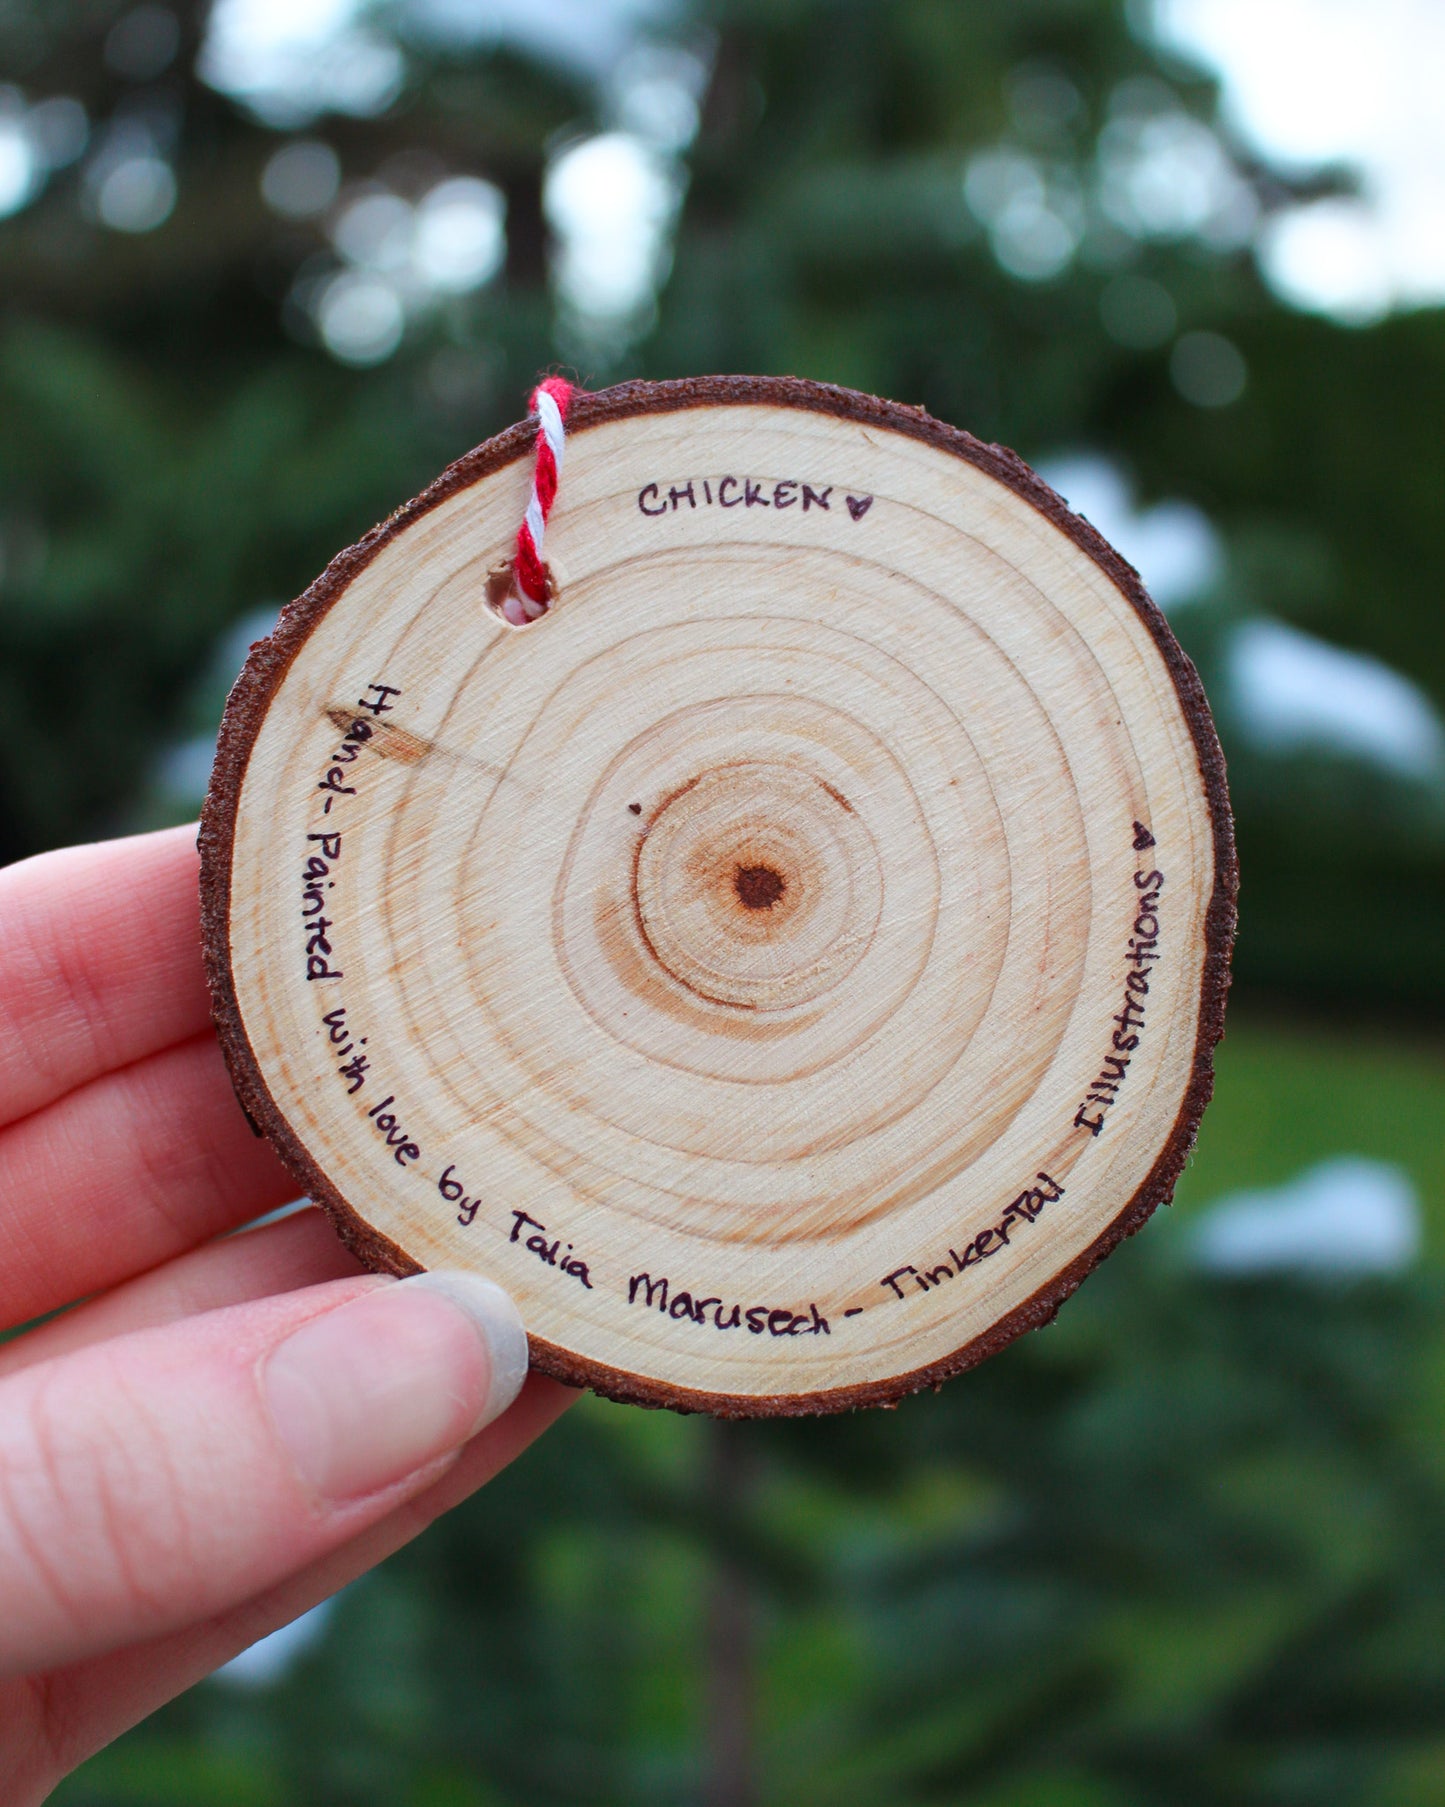 CHICKEN ♥
Hand-Painted with love by Talia Marusech - TinkerTal Illustrations ♥